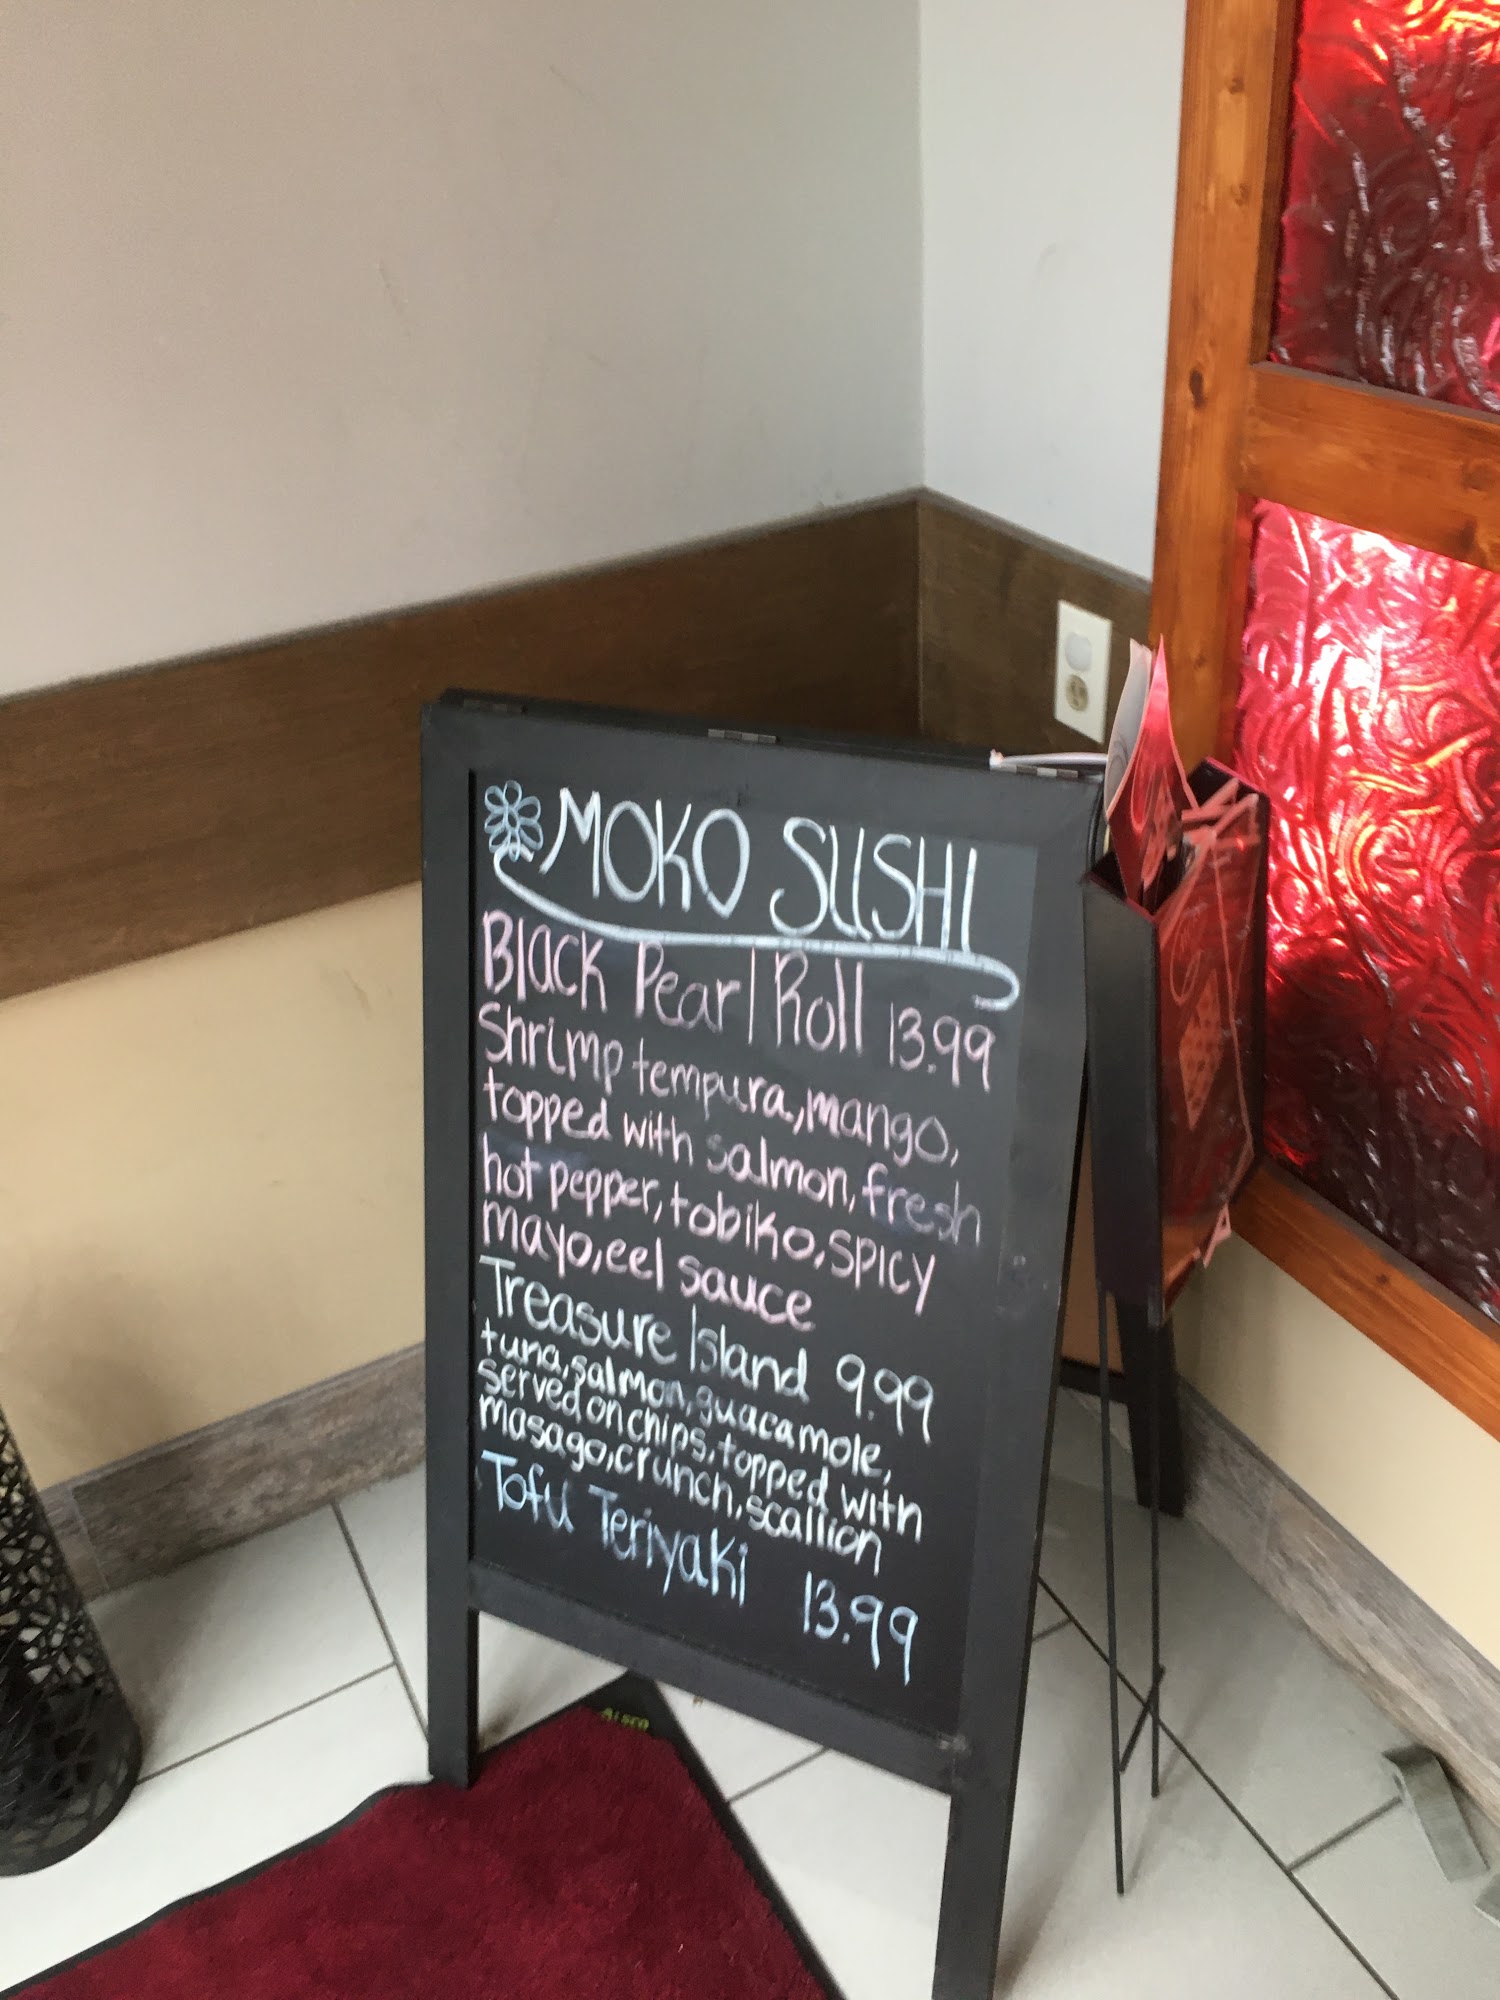 MOKO SUSHI
Black Pearl Roll 13.99
Shrimp tempura, mango,
topped with salmon, fresh
hot pepper, tobiko, spicy
mayo, eel sauce
Treasure Island 9.99
tuna, salmon, guacamole,
served on chips, topped with
masago, crunch, scallion
Tofu Teriyaki 13.99